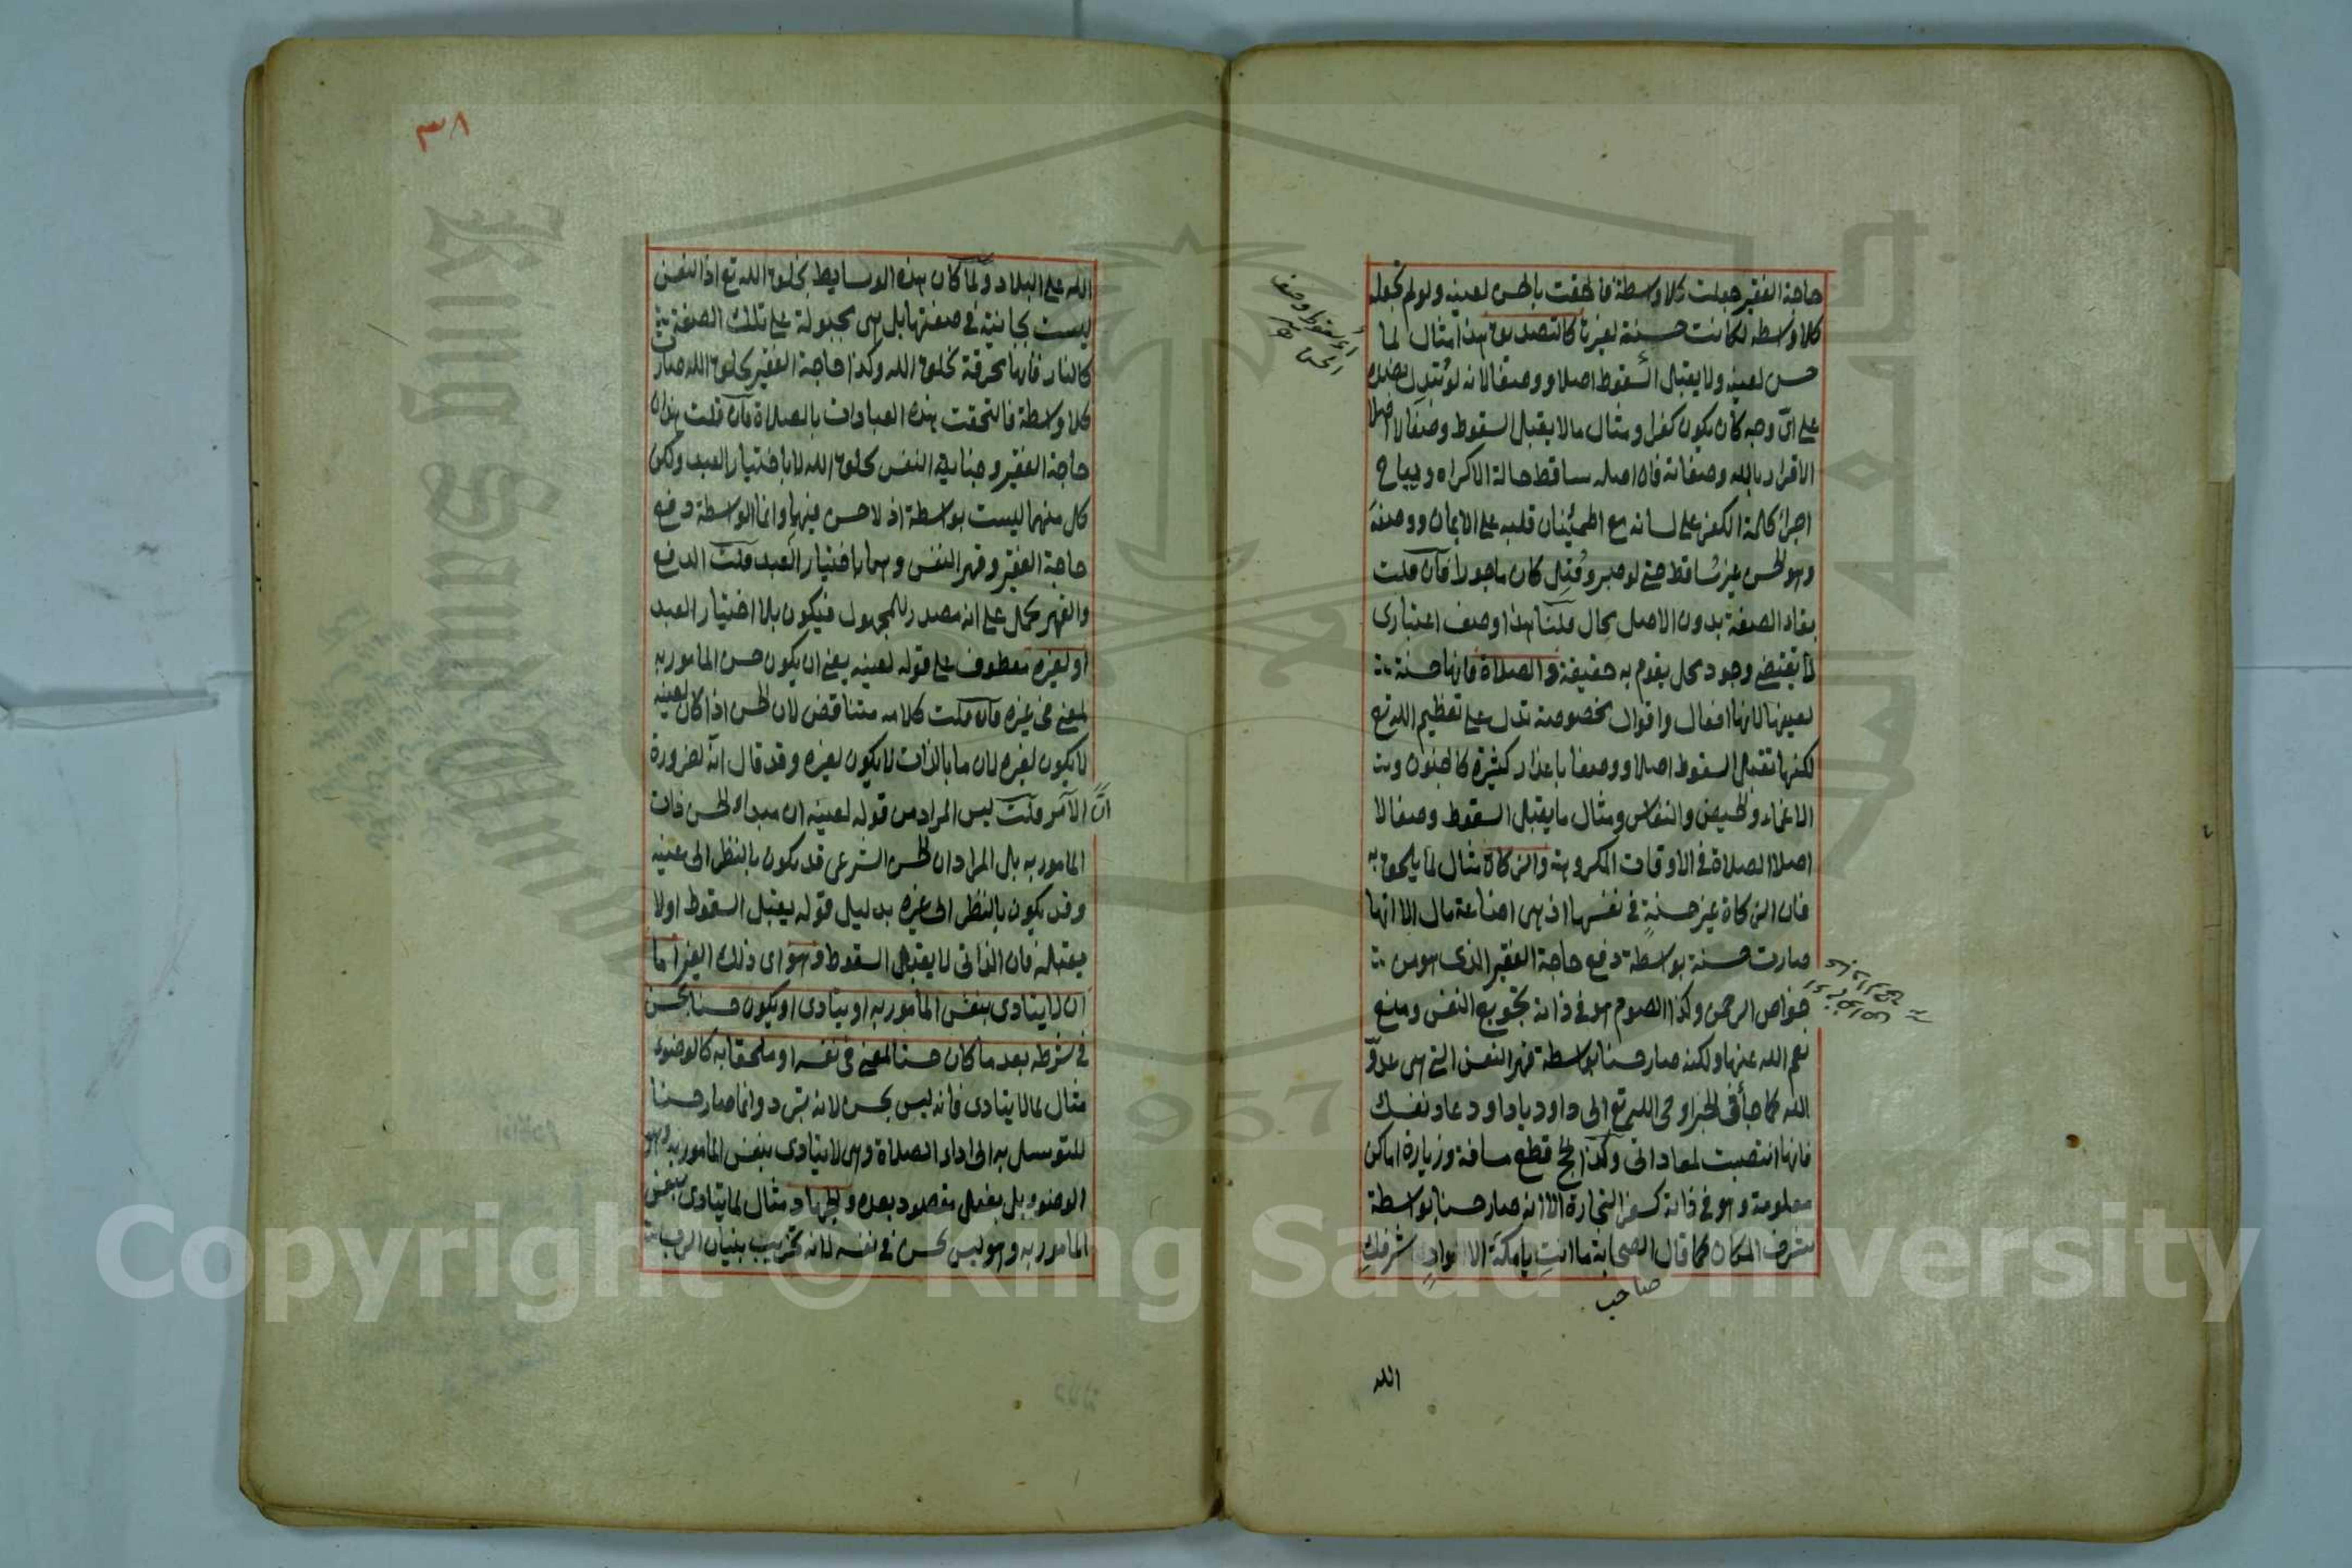 حاجة الفقير جعلت كلا واسطة فالحقت بالحسن لعينه ولو لم تجعله
كلا واسطه لكانت حسنة لغيرها كالتصديق هذا مثال لما
حسن لعينه ولا يقبل السقوط اصلا ووصفا لانه لو تبدل بضده
على اىّ وجه كان يكون كفرا ومثال ما لا يقبل السقوط وصفا لا اصلا
الاقرار بالله وصفاته فان اصله ساقط حالة الاكراه ويباح
اجراء كلمة الكفر على لسانه مع اطمئنان قلبه على الايمان ووصفه
وهو الحسن غير ساقط حتى لو صبر وقُتِل كان ماجورا فان قلت
بقاء الصفة بدون الاصل محال قلنا هذا وصف اعتبارى
لا يقتضى وجود محل يقوم به حقيقة والصلاة فانها حسنة
لعينها لانها افعال واقوال مخصوصة تدل على تعظيم الله تع
لكنها تقبل السقوط اصلا ووصفا باعذار كثيرة كالجنون و
الاغماء والحيض والنفاس ومثال ما يقبل السقوط وصفا لا
اصلا الصلاة فى الاوقات المكروهة والزكاة مثال لما يلحق به
فان الزكاة غير حسنةٍ فى نفسها اذ هى اضاعة مال الا انها
صارت حسنة بواسطة دفع حاجة الفقير الذى هو من
خواص الرحمن وكذا الصوم هو فى ذاته تجويع النفس ومنع
نعم الله عنها ولكنه صار حسنا بواسطة قهر النفس التى هى عدوّ
الله كما جأ فى الخبر اوحى الله تع الى داود يا داود عاد نفسك
فانها انتصبت لمعاداتى وكذا الحج قطع مسافة وزيارة اماكن
معلومة وهو فى ذاته كسفر التجارة الا انه صار حسنا بواسطة
شرف المكان كما قال الصحابة ما انتِ يا مكة الا وادٍ شرفكِ
صاحب
الله
٣٨
الله على البلاد ولما كان هذه الوسايط بخلق الله تع اذ النفس
ليست بجانية فى صفتها بل هى مجبولة على تلك الصفة
كالنار فانها محرقة بخلق الله وكذا حاجة الفقير بخلق الله صار
كلا واسطة فالتحقت هذه العبادات بالصلاة فان قلت هذا ان
حاجة الفقير وجناية النفس بخلق الله لا باختيار العبد ولكن
كل منهما ليست بواسطة اذ لا حسن فيهما وانما الواسطة دفع
حاجة الفقير وقهر النفس وهما باختيار العبد قلت الدفع
والقهر يحمل على انه مصدر للمجهول فيكون بلا اختيار العبد
او لغيره معطوف على قوله لعينه يعنى ان يكون حسن المامور به
لمعنى فى غيره فان قلت كلامه متناقض لان الحسن اذا كان لعينه
لا يكون لغيره لان ما بالذات لا يكون لغيره وقد قال انه لضرورة
انّ الآمر قلت ليس المراد من قوله لعينه ان مبداء الحسن ذات
المامور به بل المراد ان الحسن الشرعى قد يكون بالنظر الى عينه
وقد يكون بالنظر الى غيره بدليل قوله يقبل السقوط اولا
يقبله فان الذاتى لا يقبل السقوط وهو اى ذلك الغير اما
ان لا يتادى بنفس المأمور به او يتادى او يكون حسنا لحسن
فى شرطه بعد ما كان حسنا لمعنى فى نفسه او ملحقا به كالوضوء
مثال لما لا يتادى فانه ليس بحسن لانه تبرد وانما صار حسنا
للتوسل به الى اداء الصلاة وهى لا يتادى بنفس المامور به وهو
الوضوء بل بفعل مقصود بعده والجهاد مثال لما يتادى بنفس
المامور به وهو ليس بحسن فى نفسه لانه تخريب بنيان الرب
King Saud University
1957
Copyright © King Saud University